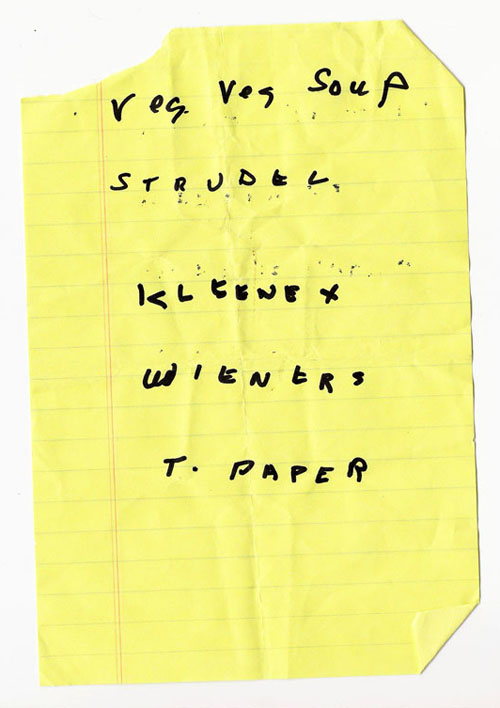 Veg. Veg Soup
STRUDEL
KLEENEX
WIENERS
T. PAPER